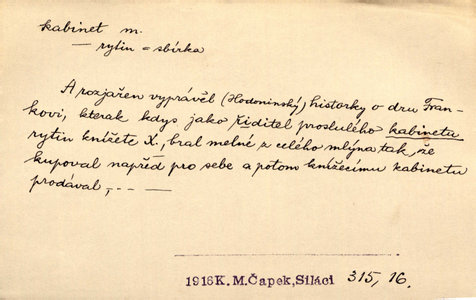 kabinet m.
— rytin = sbírka
A rozjařen vyprávěl (Hodoninský) historky o dru Fran-
kovi, kterak kdys jako řiditel proslulého kabineta
rytin knížete X., bral melné z celého mlýna tak, že
kupoval napřed pro sebe a potom knížecímu kabinetu
prodával, -- —
1916 K. M. Čapek, Siláci 315, 16.